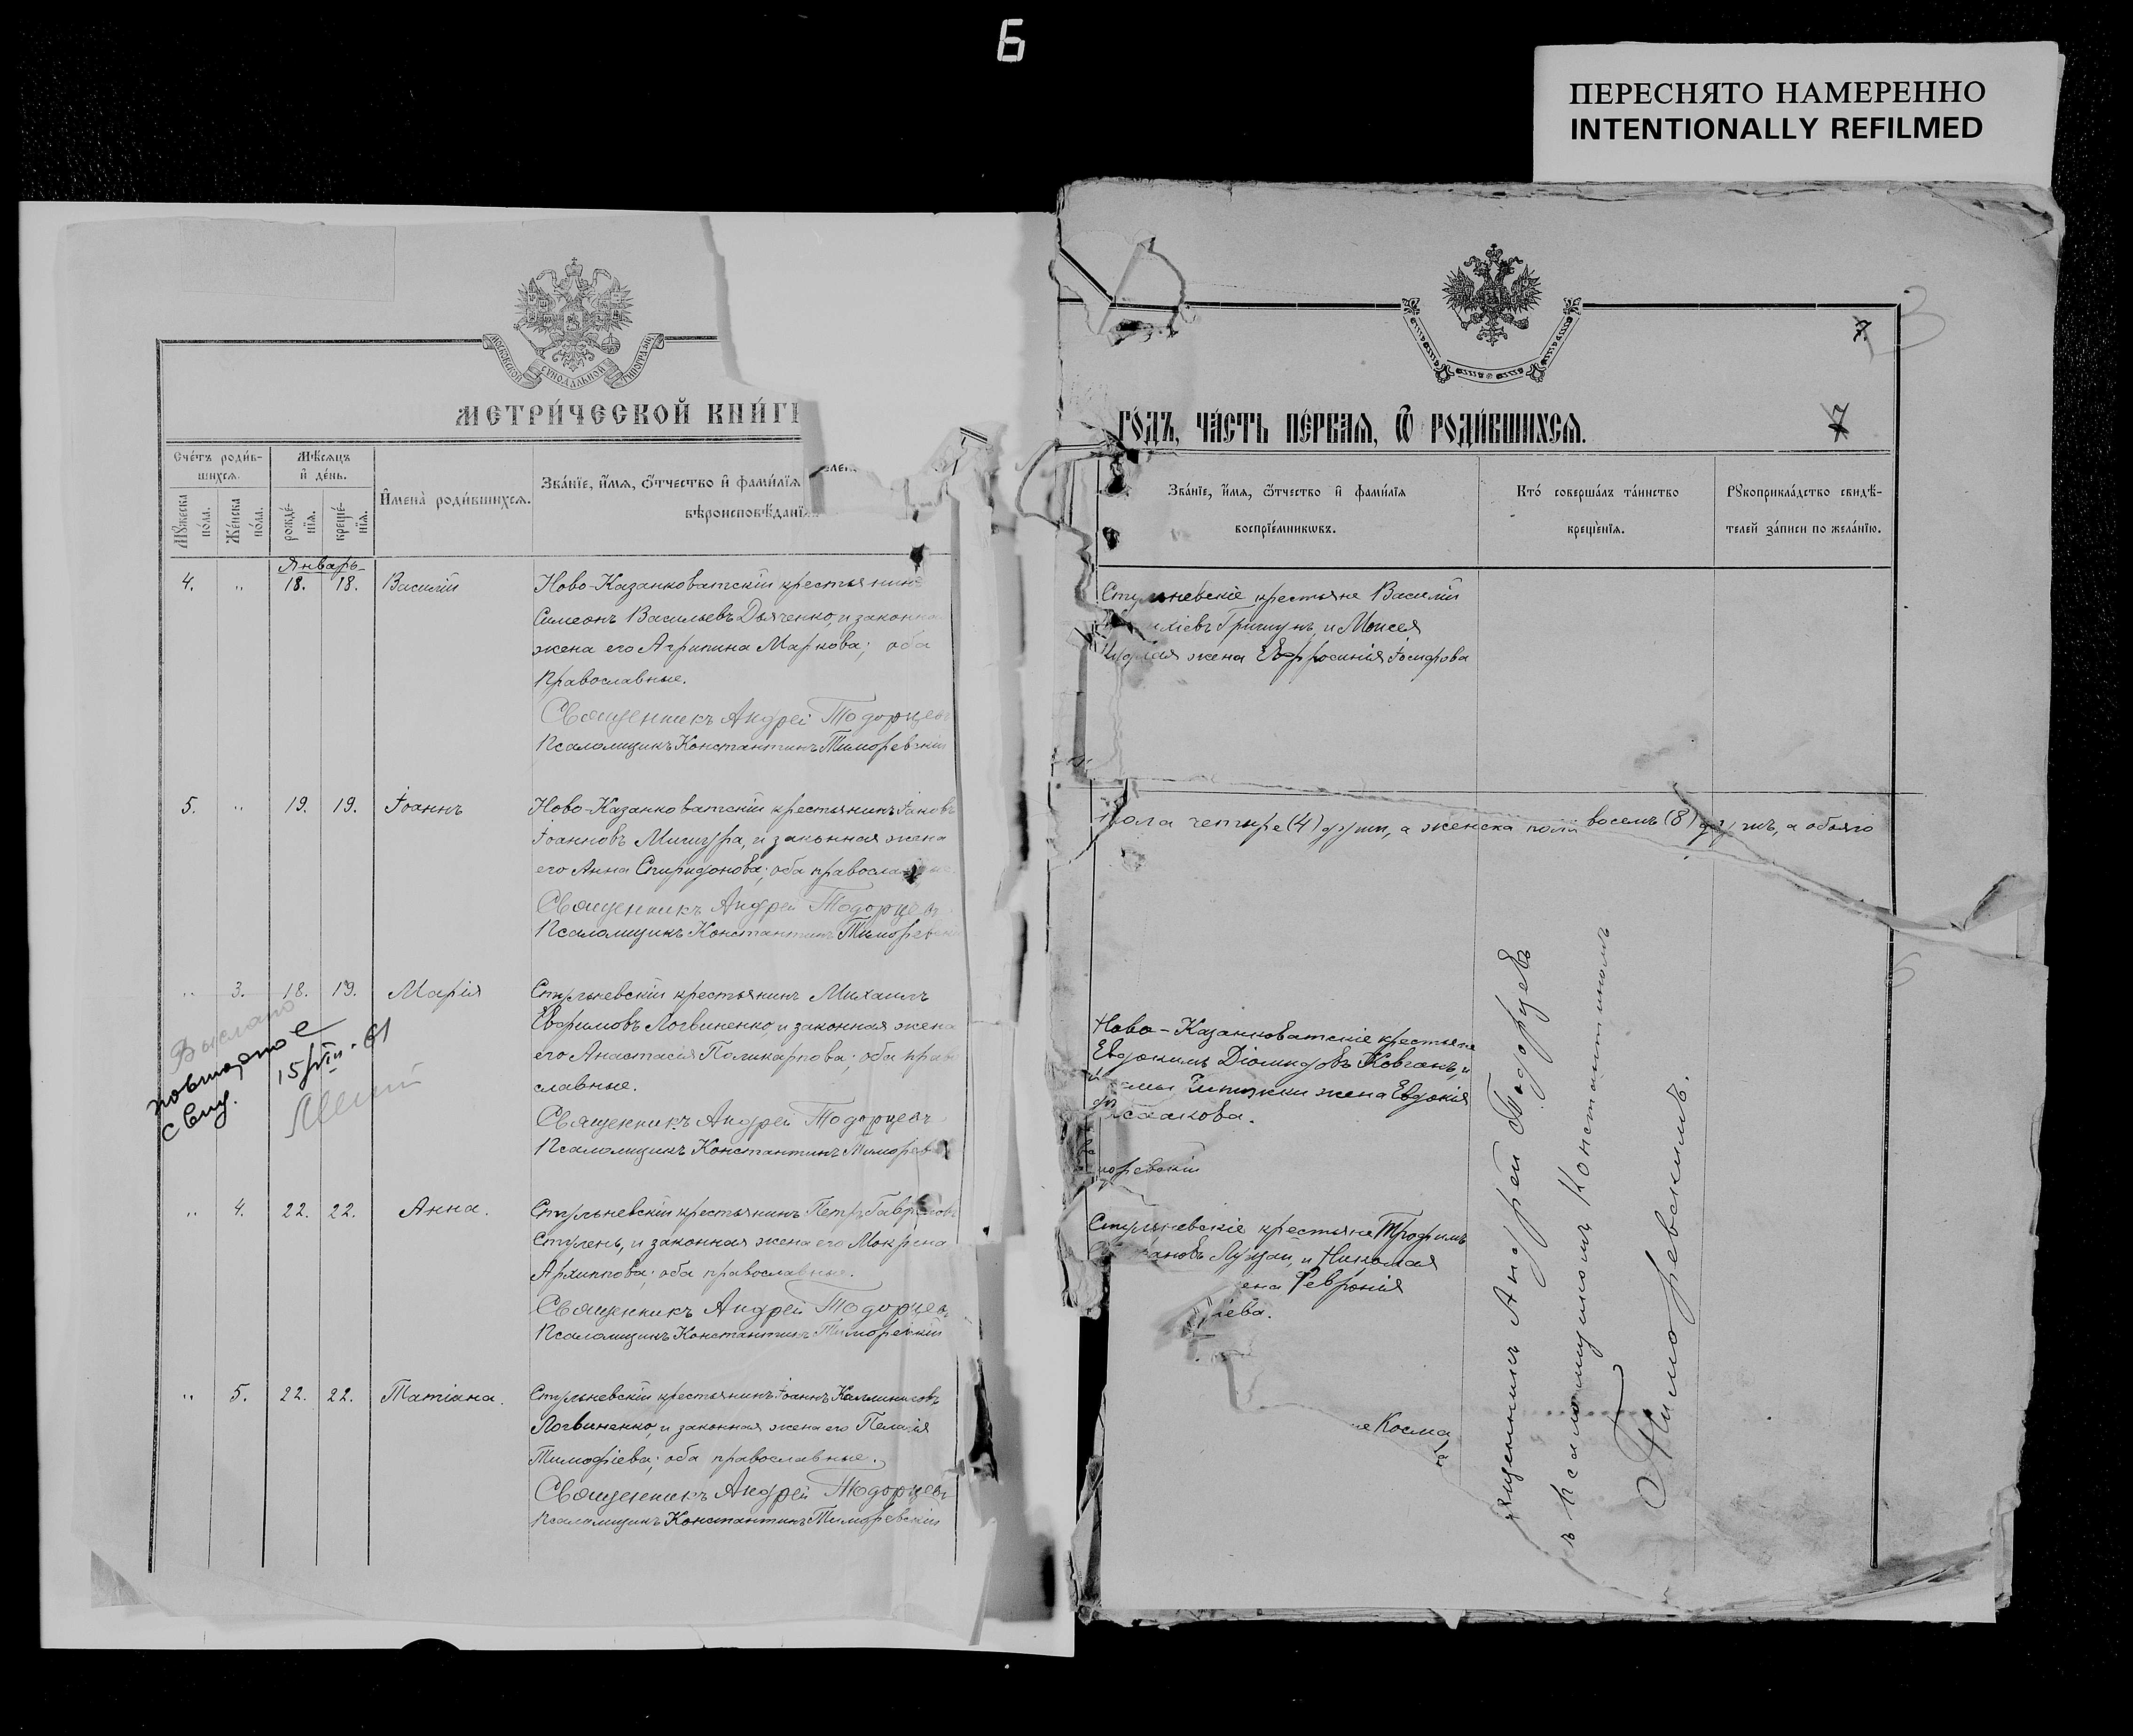 6
ПЕРЕСНЯТО НАМЕРЕННО
INTENTIONALLY REFILMED
МОСКОВСКОЙ СУНОДАЛЬНОЙ ТИПОГРАФІИ
МЕТРИ́ЧЕСКОЙ КНИ́ГИ
Сче́тъ роди́в-
шихся.
Мѣ́сяцъ
и҆ де́нь.
Мꙋ́жеска по́ла.
Же́нска по́ла.
рожде́-
нїѧ.
креще́-
нїѧ.
И҆мена̀ роди́вшихсѧ.
Зва́нїе, и҆́мѧ, ѻ҆́тчество и҆ фами́лїѧ
вѣроисповѣ́данїѧ
Январь
4. „ 18. 18. Василій
Ново-Казанковатскій крестьянинъ
Симеонъ Васильевъ Дьяченко, и законная
жена его Агрипина Маркова; оба
православные.
Священникъ Андрей Тодорцевъ
Псаломщикъ Константинъ Тиморевскій
5. „ 19. 19. Іоаннъ
Ново-Казанковатскій крестьянинъ Іаковъ
Іоанновъ Мишура, и законная жена
его Анна Спиридонова; оба православные.
Священникъ Андрей Тодорцевъ
Псаломщикъ Константинъ Тиморевскій
„ 3. 18. 19. Марія
Стульневскій крестьянинъ Михаилъ
Евфимовъ Логвиненко, и законная жена
его Анастасія Поликарпова; оба право
славные.
Священникъ Андрей Тодорцевъ
Псаломщикъ Константинъ Тиморев
Выслано
повторное
с вид.
15/VIII-61
„ 4. 22. 22. Анна.
Стульневскій крестьянинъ Петръ Гавриловъ
Ступень, и законная жена его Мокрина
Архиппова; оба православные.
Священникъ Андрей Тодорцевъ
Псаломщикъ Константинъ Тиморевскій
„ 5. 22. 22. Татіана.
Стульневскій крестьянинъ Іоаннъ Каллиниковъ
Логвиненко, и законная жена его Пелагія
Тимофіева; оба православные.
Священникъ Андрей Тодорцевъ
Псаломщикъ Константинъ Тиморевскій
7.
3
7
ГО́ДЪ, ЧА́СТЬ ПЕ́РВАѦ, Ѽ РОДИ́ВШИХСѦ.
Зва́нїе, и҆́мѧ, ѻ҆́тчество и҆ фами́лїѧ
воспрїе́мниковъ.
Кто̀ соверша́лъ та́инство
креще́нїѧ.
Рꙋкоприкла́дство свидѣ́-
телей за́писи по жела́нїю.
Стульневскіе крестьяне Василій
Гришунъ, и Моисея
жена Евфросинія Іосифова
пола четыре (4) души, а женска пола восемь (8) душъ, а обоего
Ново-Казанковатскіе крестьяне
Евдокимъ Діомидовъ Ковганъ, и
жена Евдокія
Исаакова.
моревскій
Стульневскіе крестьяне Трофимъ
Лузан, и Николая
ена Февронія
іева.
не Косма
Священникъ Андрей Тодорцевъ
съ псаломщикомъ Константиномъ
Тиморевскимъ.